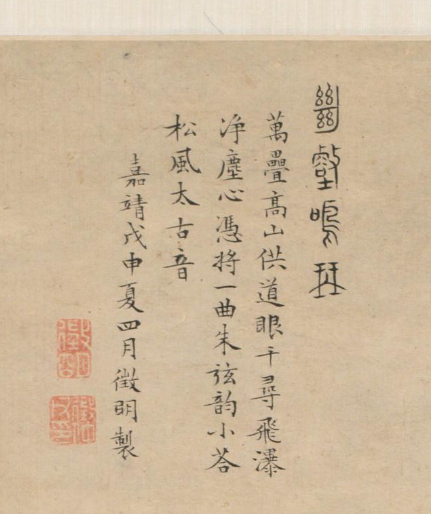 幽壑鳴琴
萬疊高山供道眼千尋飛瀑
净塵心憑將一曲朱弦韵小荅
松風太古音
嘉靖戊申夏四月徵明製